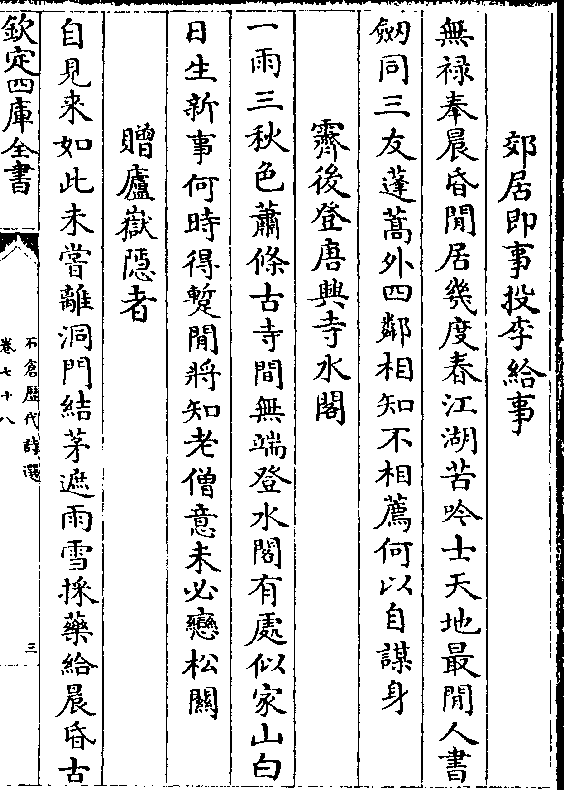 郊居即事投李給事
無禄奉晨昏閒居幾度春江湖苦吟士天地最閒人書
劒同三友蓬蒿外四鄰相知不相薦何以自謀身
霽後登唐興寺水閣
一雨三秋色蕭條古寺間無端登水閣有處似家山白
日生新事何時得蹔閒將知老僧意未必戀松關
贈廬嶽隱者
自見来如此未嘗離洞門結茅遮雨雪採藥給晨昏古
欽定四庫全書
石倉歴代詩選
卷七十八
三